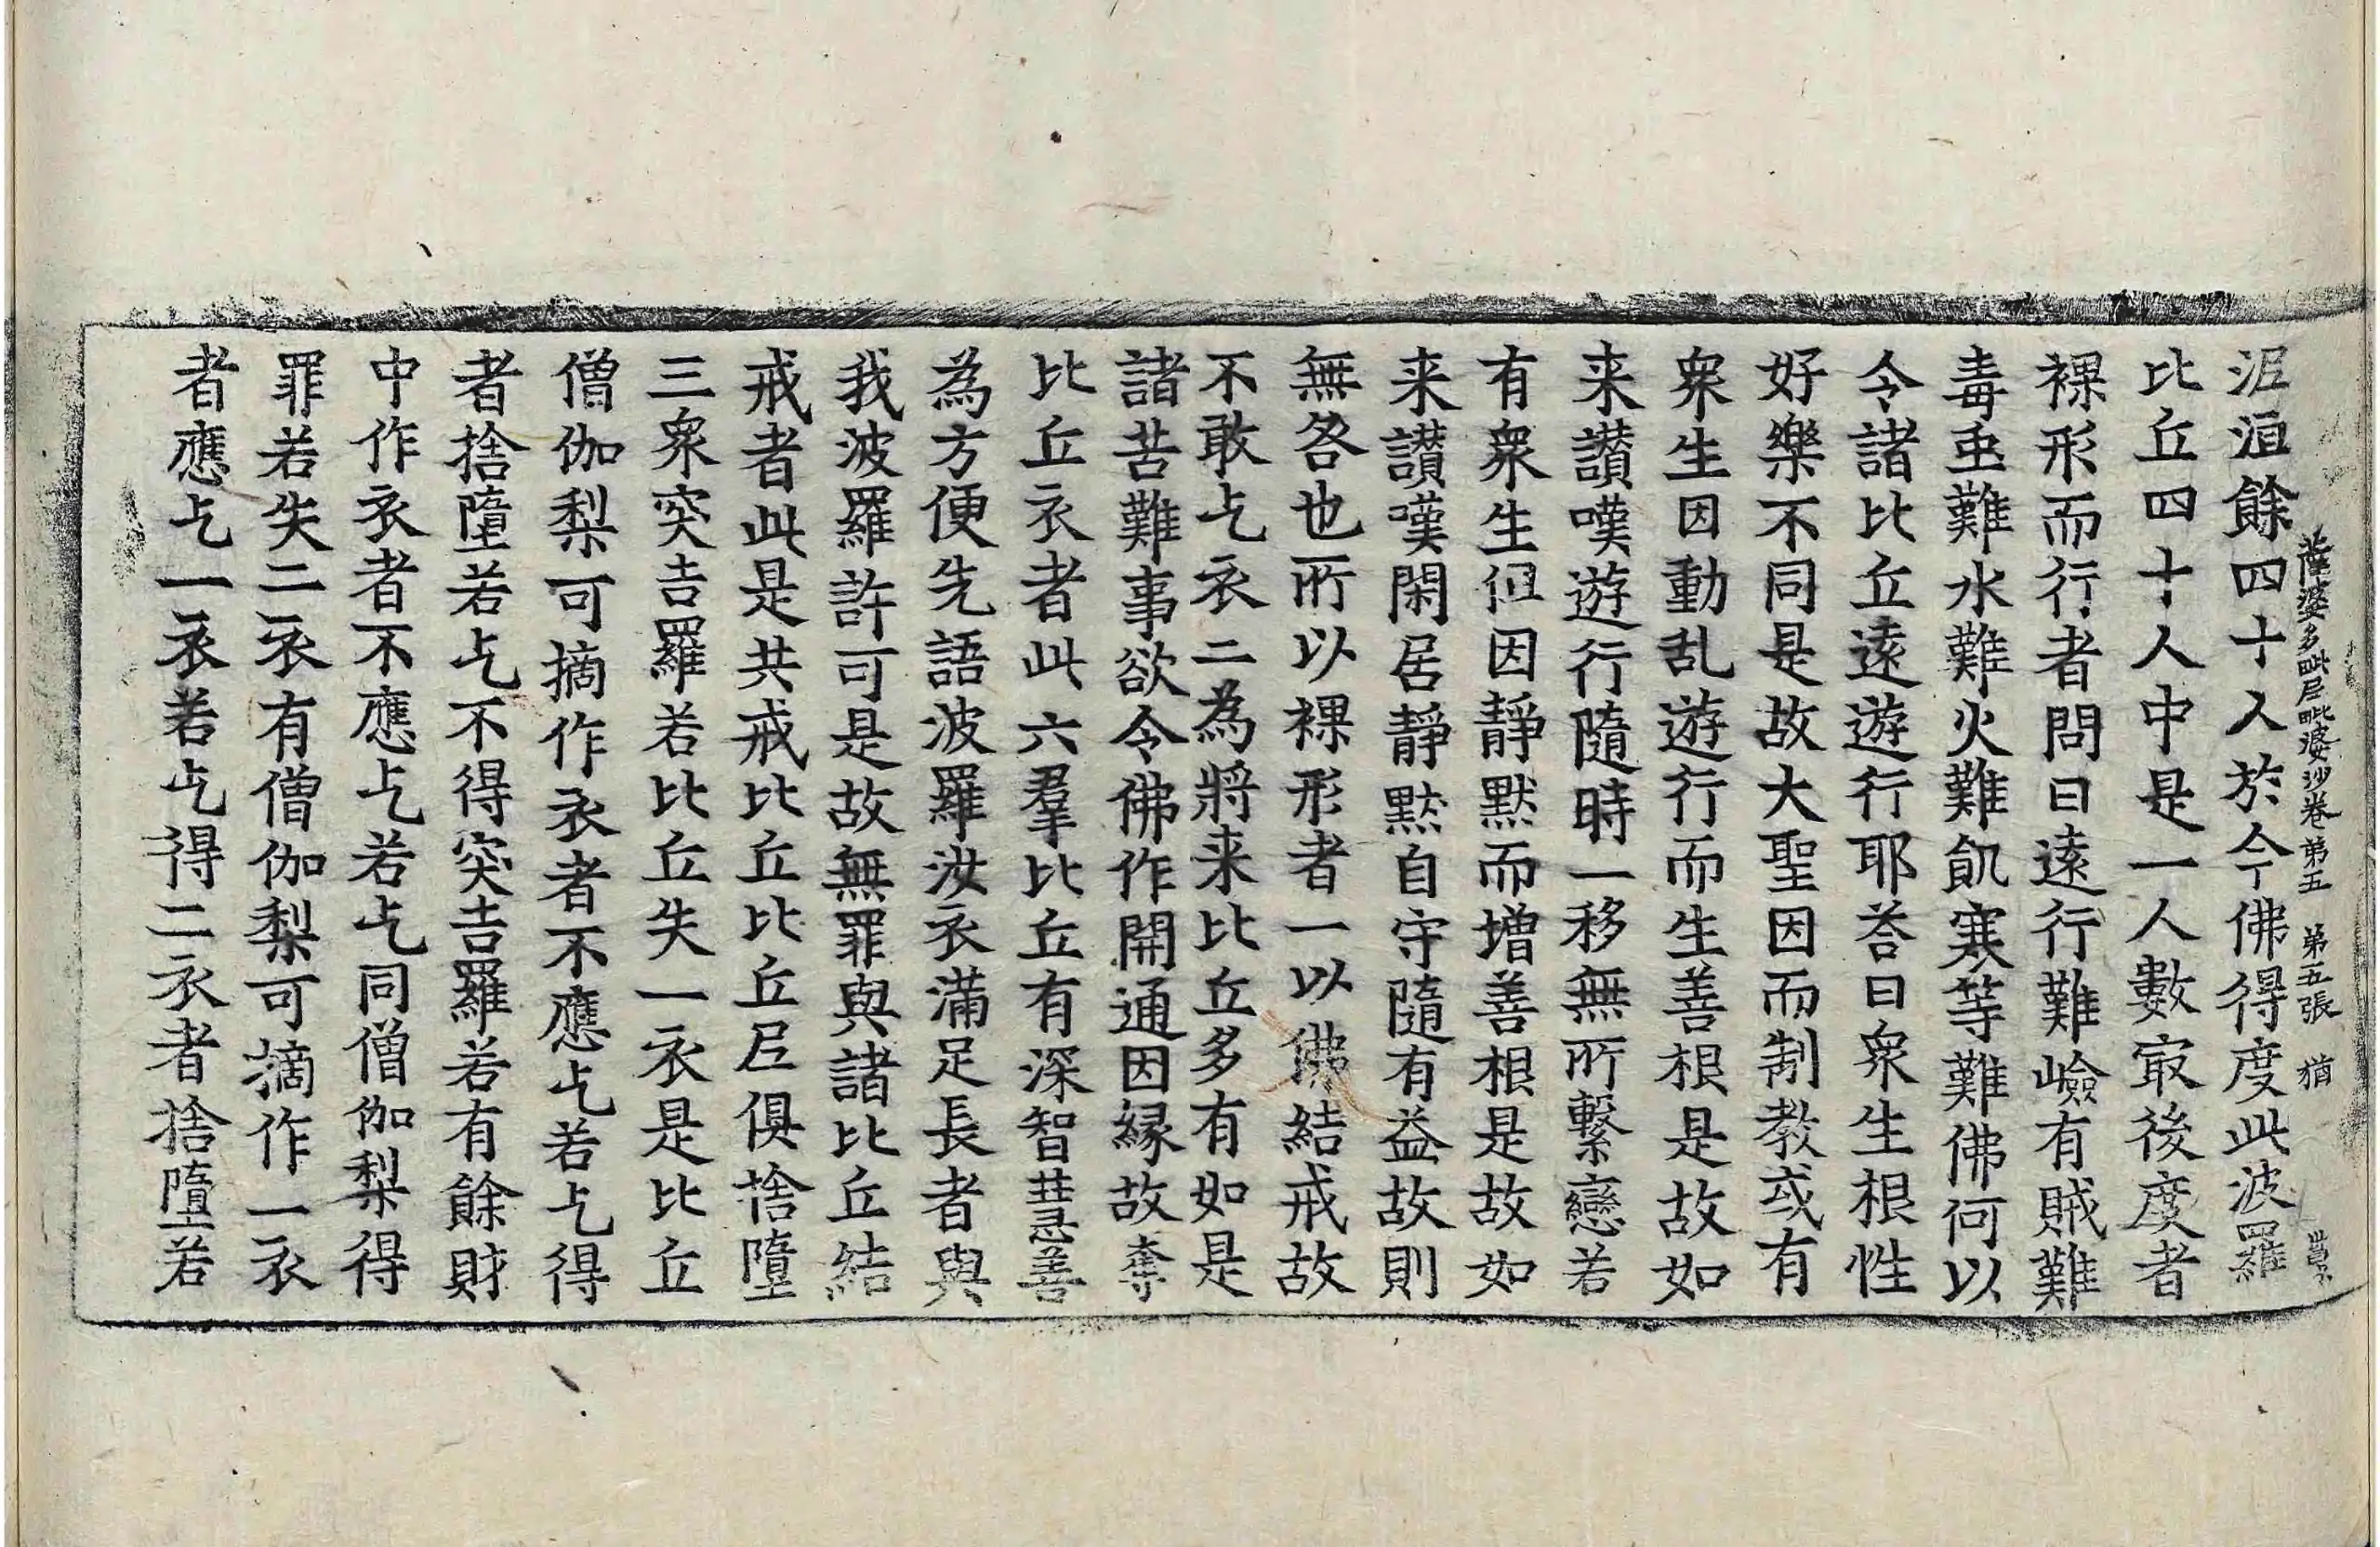 薩婆多毗尼毗婆沙卷第五　第五張　猶
泥洹餘四十人於今佛得度此波羅
比丘四十人中是一人數㝡後度者
裸形而行者問曰遠行難嶮有賊難
毒虫難水難火難飢寒等難佛何以
令諸比丘遠遊行耶荅曰衆生根性
好樂不同是故大聖因而制教或有
衆生因動乱遊行而生善根是故如
来讃嘆遊行隨時一移無所繫戀若
有衆生但因靜默而增善根是故如
来讃嘆閑居靜默自守隨有益故則
無咎也所以裸形者一以佛結戒故
不敢乞衣二為將来比丘多有如是
諸苦難事欲令佛作開通因緣故奪
比丘衣者此六羣比丘有深智慧善
為方便先語波羅汝衣滿足長者與
我波羅許可是故無罪與諸比丘結
戒者此是共戒比丘比丘尼俱捨墮
三衆突吉羅若比丘失一衣是比丘
僧伽梨可摘作衣者不應乞若乞得
者捨墮若乞不得突吉羅若有餘財
中作衣者不應乞若乞同僧伽梨得
罪若失二衣有僧伽梨可摘作一衣
者應乞一衣若乞得二衣者捨墮若